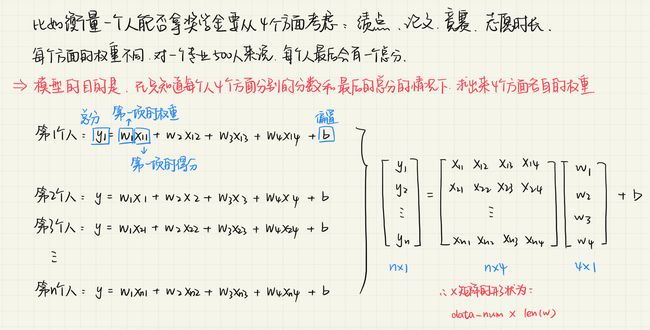 比如衡量一个人能否拿奖学金要从4个方面考虑：绩点、论文、竞赛、志愿时长.
每个方面的权重不同.对一个专业500人来说.每个人最后会有一个总分.
⇒ 模型的目的是.在只知道每个人4个方面分别的分数和最后的总分的情况下.求出来4个方面各自的权重
总分 第一项的权重 偏置
第1个人：y₁ = w₁x₁₁ + w₂x₁₂ + w₃x₁₃ + w₄x₁₄ + b
第一项的得分
第2个人：y = w₁x₁ + w₂x₂ + w₃x₃ + w₄x₄ + b
第3个人：y = w₁x₂₁ + w₂x₂₂ + w₃x₂₃ + w₄x₂₄ + b
⋮
第n个人：y = w₁xₙ₁ + w₂xₙ₂ + w₃xₙ₃ + w₄xₙ₄ + b
y₁ x₁₁ x₁₂ x₁₃ x₁₄ w₁
y₂ = x₂₁ x₂₂ x₂₃ x₂₄ w₂ + b
⋮ ⋮ w₃
yₙ xₙ₁ xₙ₂ xₙ₃ xₙ₄ w₄
n×1 n×4 4×1
∴ X矩阵的形状为：
data-num × len(w)